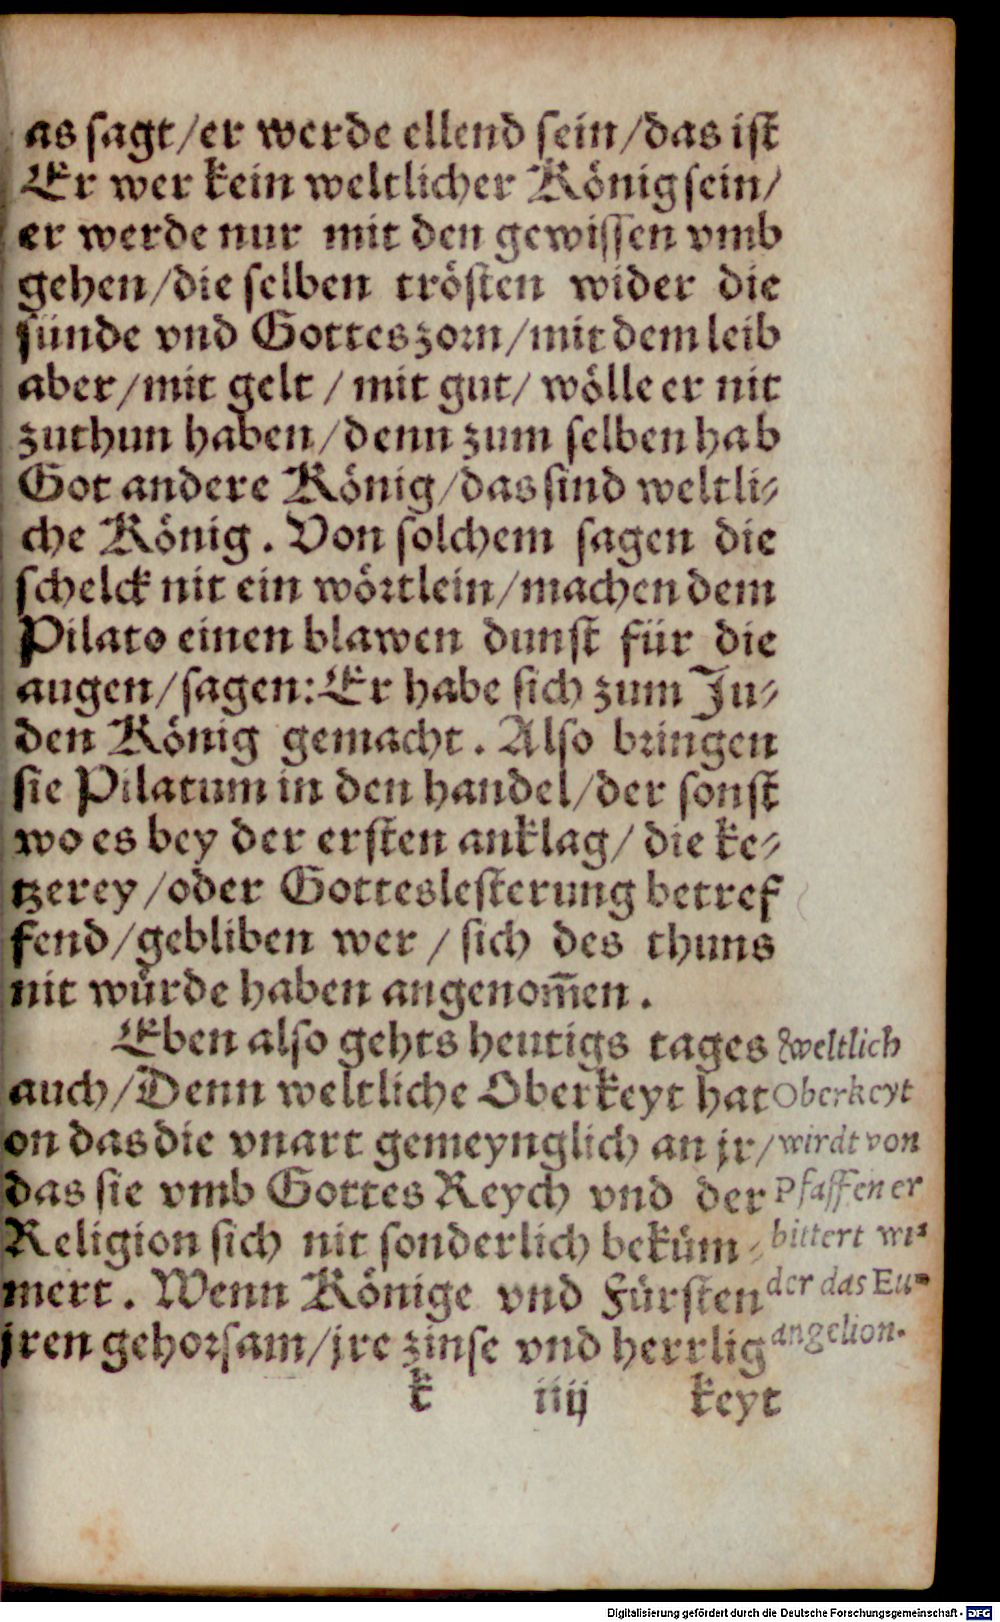 as sagt/er werde ellend sein/das ist
Er wer kein weltlicher König sein/
er werde nur mit den gewissen vmb
gehen/die selben trösten wider die
sünde vnd Gottes zorn/mit dem leib
aber/mit gelt/mit gut/wölle er nit
zuthun haben/denn zum selben hab
Got andere König/das sind weltli-
che König. Von solchem sagen die
schelck nit ein wörtlein/machen dem
Pilato einen blawen dunst für die
augen/sagen: Er habe sich zum Ju-
den König gemacht. Also bringen
sie Pilatum in den handel/der sonst
wo es bey der ersten anklag/die ke-
tzerey/oder Gotteslesterung betref
fend/gebliben wer/sich des thuns
nit würde haben angenom̃en.
Eben also gehts heutigs tages
auch/Denn weltliche Oberkeyt hat
on das die vnart gemeynglich an jr/
das sie vmb Gottes Reych vnd der
Religion sich nit sonderlich beküm-
mert. Wenn Könige vnd Fürsten
jren gehorsam/jre zinse vnd herrlig
k iiij keyt
weltlich
Oberkeyt
wirdt von
Pfaffen er
bittert wi-
der das Eu-
angelion.
Digitalisierung gefördert durch die Deutsche Forschungsgemeinschaft - DFG